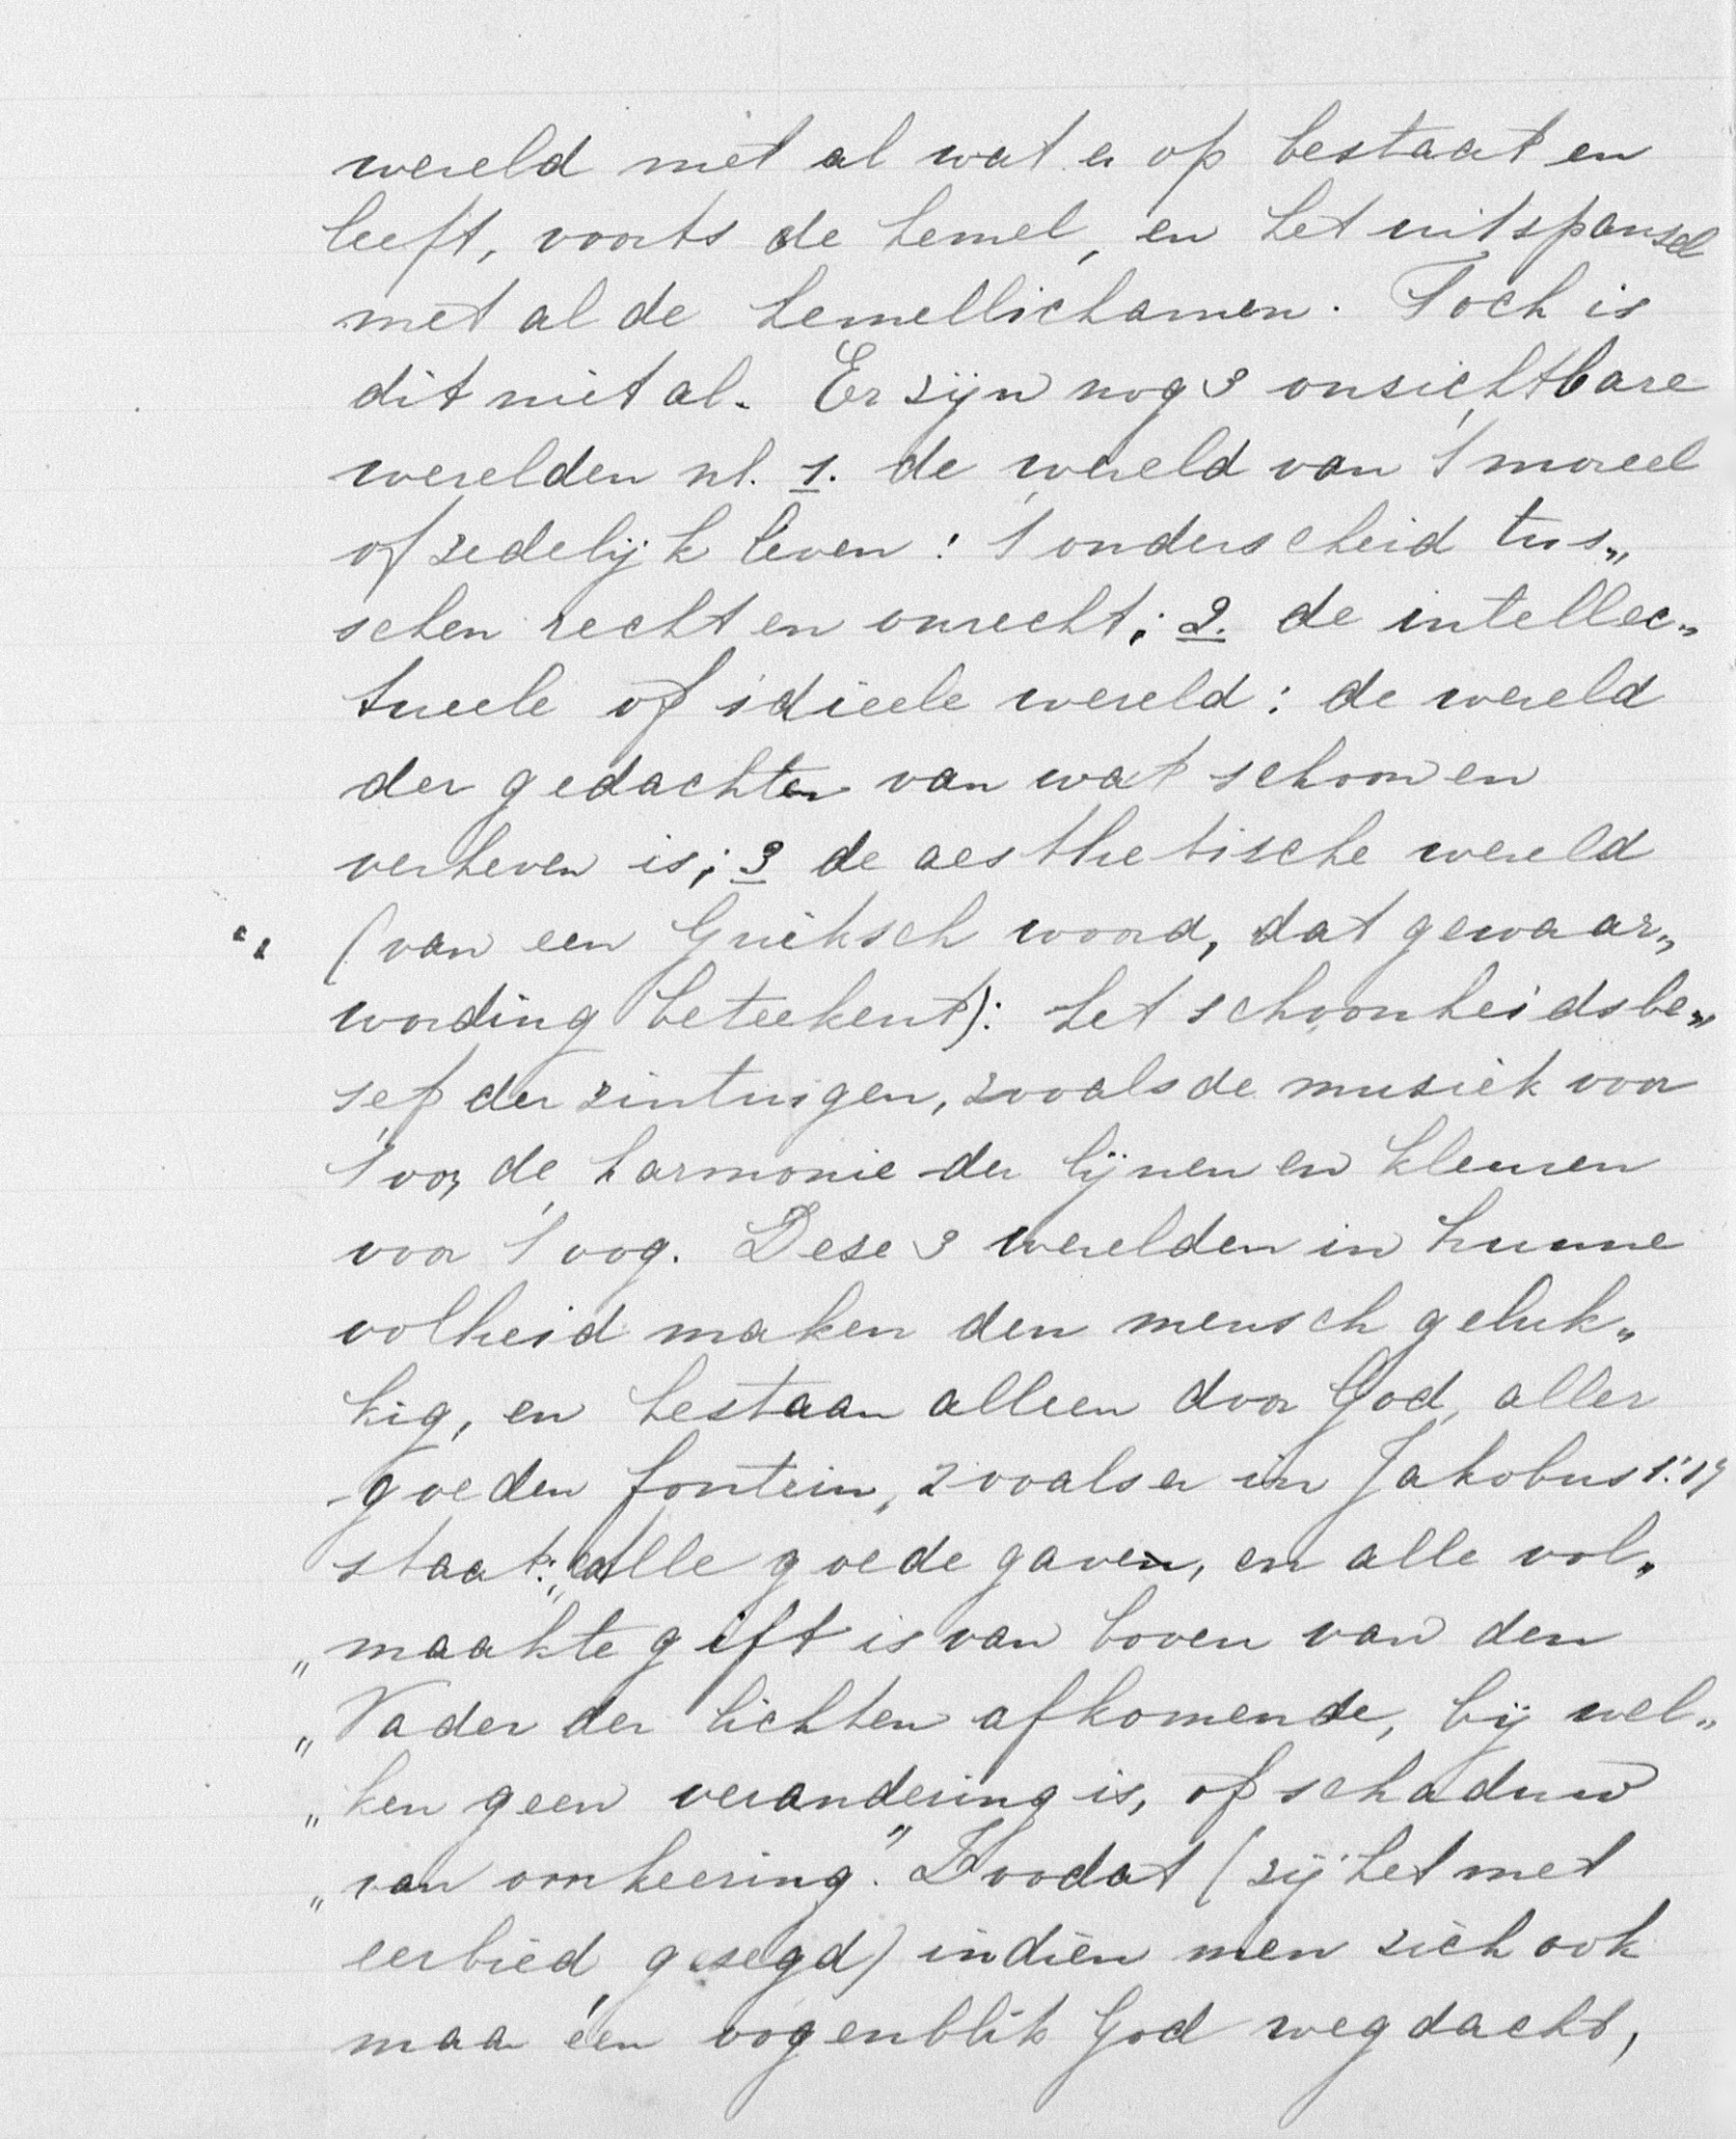 wereld met al wat er op bestaat en
leeft, voorts de hemel, en het uitspansel
met al de hemellichamen. Toch is
dit niet al. Er zijn nog 3 onzichtbare
werelden nl. 1. de wereld van 't moreel
of zedelijk leven: 't onderscheid tus„
schen recht en onrecht; 2. de intellec„
tueele of idieele wereld: de wereld
der gedachten van wat schoon en
verheven is; 3 de aesthetische wereld
(van een Grieksch woord, dat gewaar„
wording beteekent): het schoonheidsbe„
sef der zintuigen, zooals de musiek voor
't oor, de harmonie der lijnen en kleuren
voor 't oog. Deze 3 werelden in hunne
volheid maken den mensch geluk„
kig, en bestaan alleen door God, aller
goeden fontein, zooals er in Jakobus 1:17
staat: „alle goede gaven, en alle vol„
„maakte gift is van boven van den
„Vader der lichten afkomende, bij wel„
„ken geen verandering is, of schaduw
„van omkeering." Zoodat (zij het met
eerbied gezegd) indien men zich ook
maar één oogenblik God wegdacht,